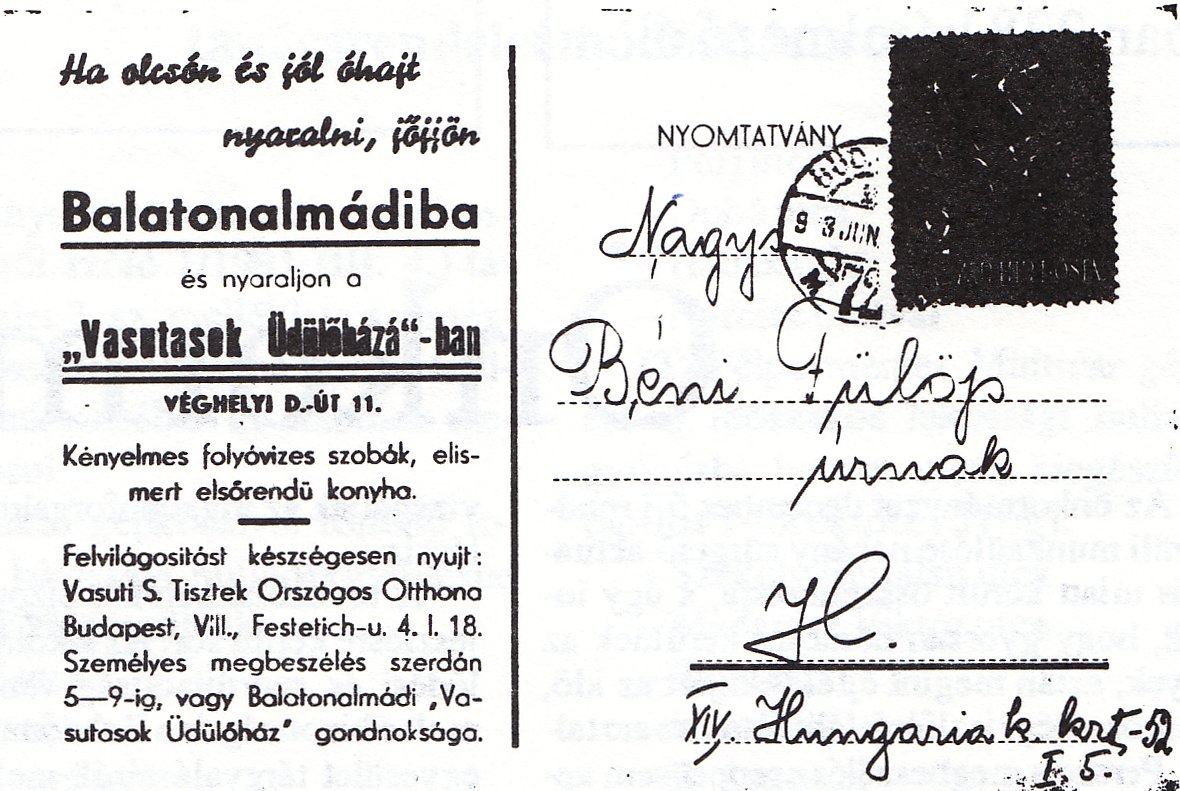 Ha olcsón és jól óhajt
nyaralni, jőjjön
Balatonalmádiba
és nyaraljon a
„Vasutasok Üdülőházá“-ban
VÉGHELYI D.-ÚT 11.
Kényelmes folyóvizes szobák, elis-
mert elsőrendü konyha.
Felvilágositást készségesen nyujt:
Vasuti S. Tisztek Országos Otthona
Budapest, VIII., Festetich-u. 4. I. 18.
Személyes megbeszélés szerdán
5—9-ig, vagy Balatonalmádi „Va-
sutasok Üdülőház" gondnoksága.
NYOMTATVÁNY
9 3 JUN.
72
Nagys
Béni Fülöp
úrnak
H.
XIV. Hungaria k. krt-52
I. 5.